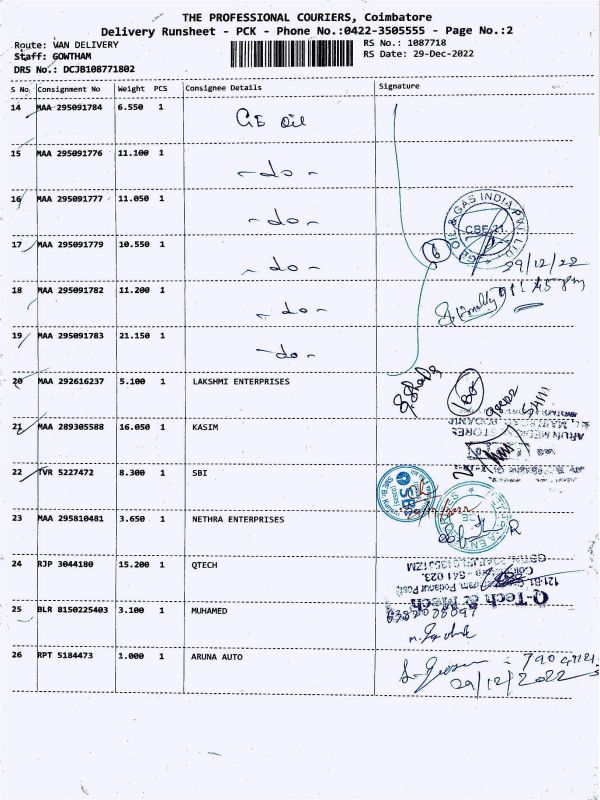 THE PROFESSIONAL COURIERS, Coimbatore
Delivery Runsheet - PCK - Phone No.:0422-3505555 - Page No.:2
Route: VAN DELIVERY
Staff: GOWTHAM
DRS No.: DCJB108771802
RS No.: 1087718
RS Date: 29-Dec-2022
S No. Consignment No Weight PCS Consignee Details Signature
14 MAA 295091784 6.550 1 GE oil
15 MAA 295091776 11.100 1 -do-
16 MAA 295091777 11.050 1 -do-
GE OIL & GAS INDIA PVT LTD
CBE-21.
17 MAA 295091779 10.550 1 -do-
6
29/12/22
18 MAA 295091782 11.200 1 -do-
19 MAA 295091783 21.150 1 -do-
20 MAA 292616237 5.100 1 LAKSHMI ENTERPRISES
21 MAA 289305588 16.050 1 KASIM
ARUN MEDICAL STORES
22 TVR 5227472 8.300 1 SBI
SBI
23 MAA 295810481 3.650 1 NETHRA ENTERPRISES
24 RJP 3044180 15.200 1 QTECH
Q-Tech & Mech
25 BLR 8150225403 3.100 1 MUHAMED
26 RPT 5184473 1.000 1 ARUNA AUTO
29/12/2022